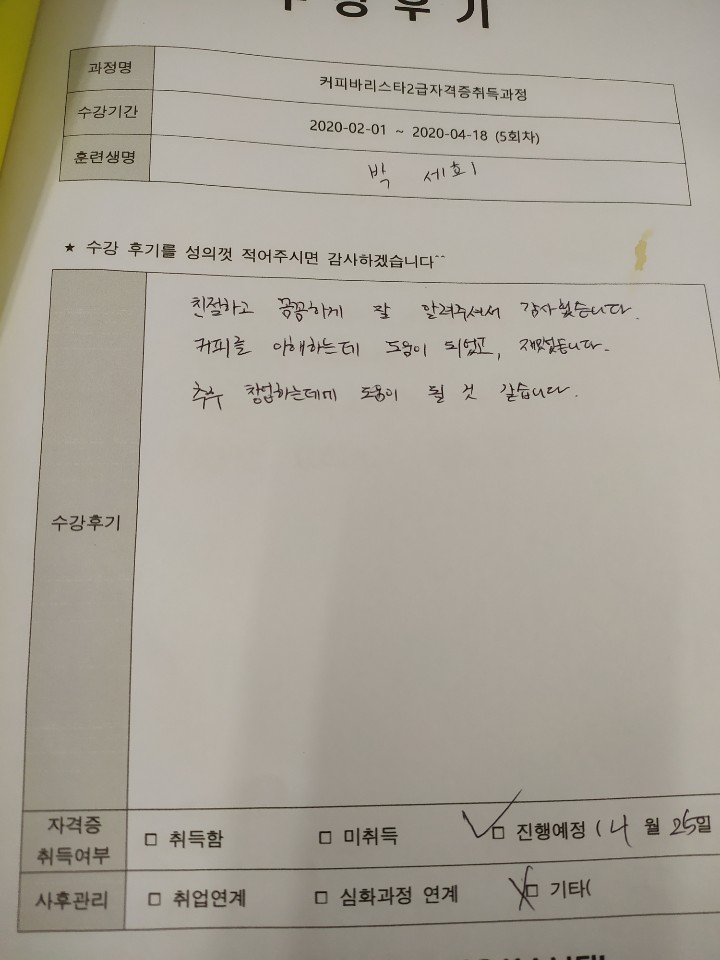 수 강 후 기
과정명 커피바리스타2급자격증취득과정
수강기간 2020-02-01 ~ 2020-04-18 (5회차)
훈련생명 박 세희
★ 수강 후기를 성의껏 적어주시면 감사하겠습니다^^
친절하고 꼼꼼하게 잘 알려주셔서 감사했습니다.
커피를 이해하는데 도움이 되었고, 재밌었습니다.
추후 창업하는데에 도움이 될 것 같습니다.
수강후기
자격증
취득여부
□ 취득함 □ 미취득 □ 진행예정 (4 월 25일
사후관리 □ 취업연계 □ 심화과정 연계 □ 기타(